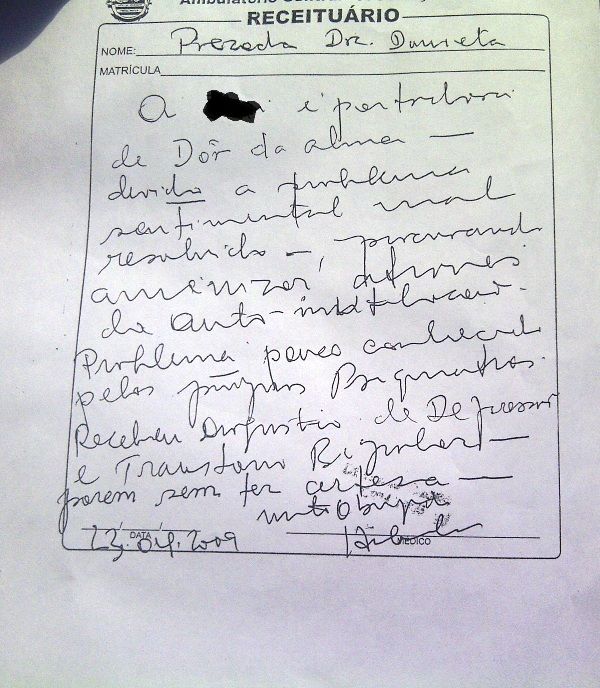 RECEITUÁRIO
NOME: Prezada Dra.
MATRÍCULA
A é portadora
de Dor da alma —
devido a problema
sentimental mal
resolvido —, procurando
amenizar através
da auto-mutilacao.
Problema pouco conhecido
pelos próprios Psiquiatras.
Recebeu Diagnostico de Depressao
e Transtorno Bipolar —
porem sem ter certeza —
muito Obrigada
23.04.2009
DATA
MÉDICO